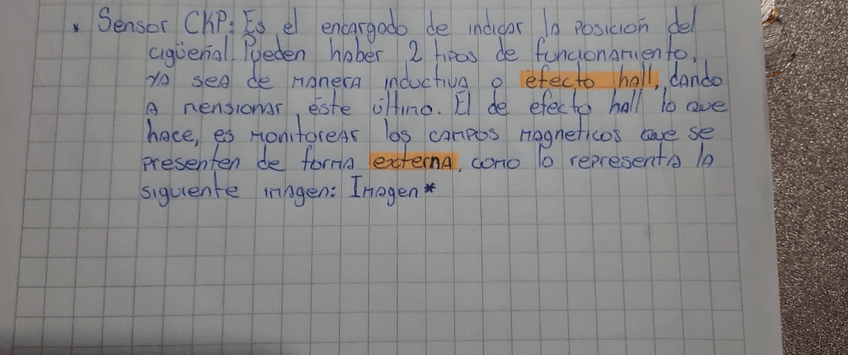 * Sensor CKP: Es el encargado de indicar la posición del
cigüeñal. Pueden haber 2 tipos de funcionamiento,
ya sea de manera inductiva o efecto hall, dando
a mensionar éste último. El de efecto hall lo que
hace, es monitorear los campos magneticos que se
presenten de forma externa, como lo representa la
siguiente imagen: Imagen*